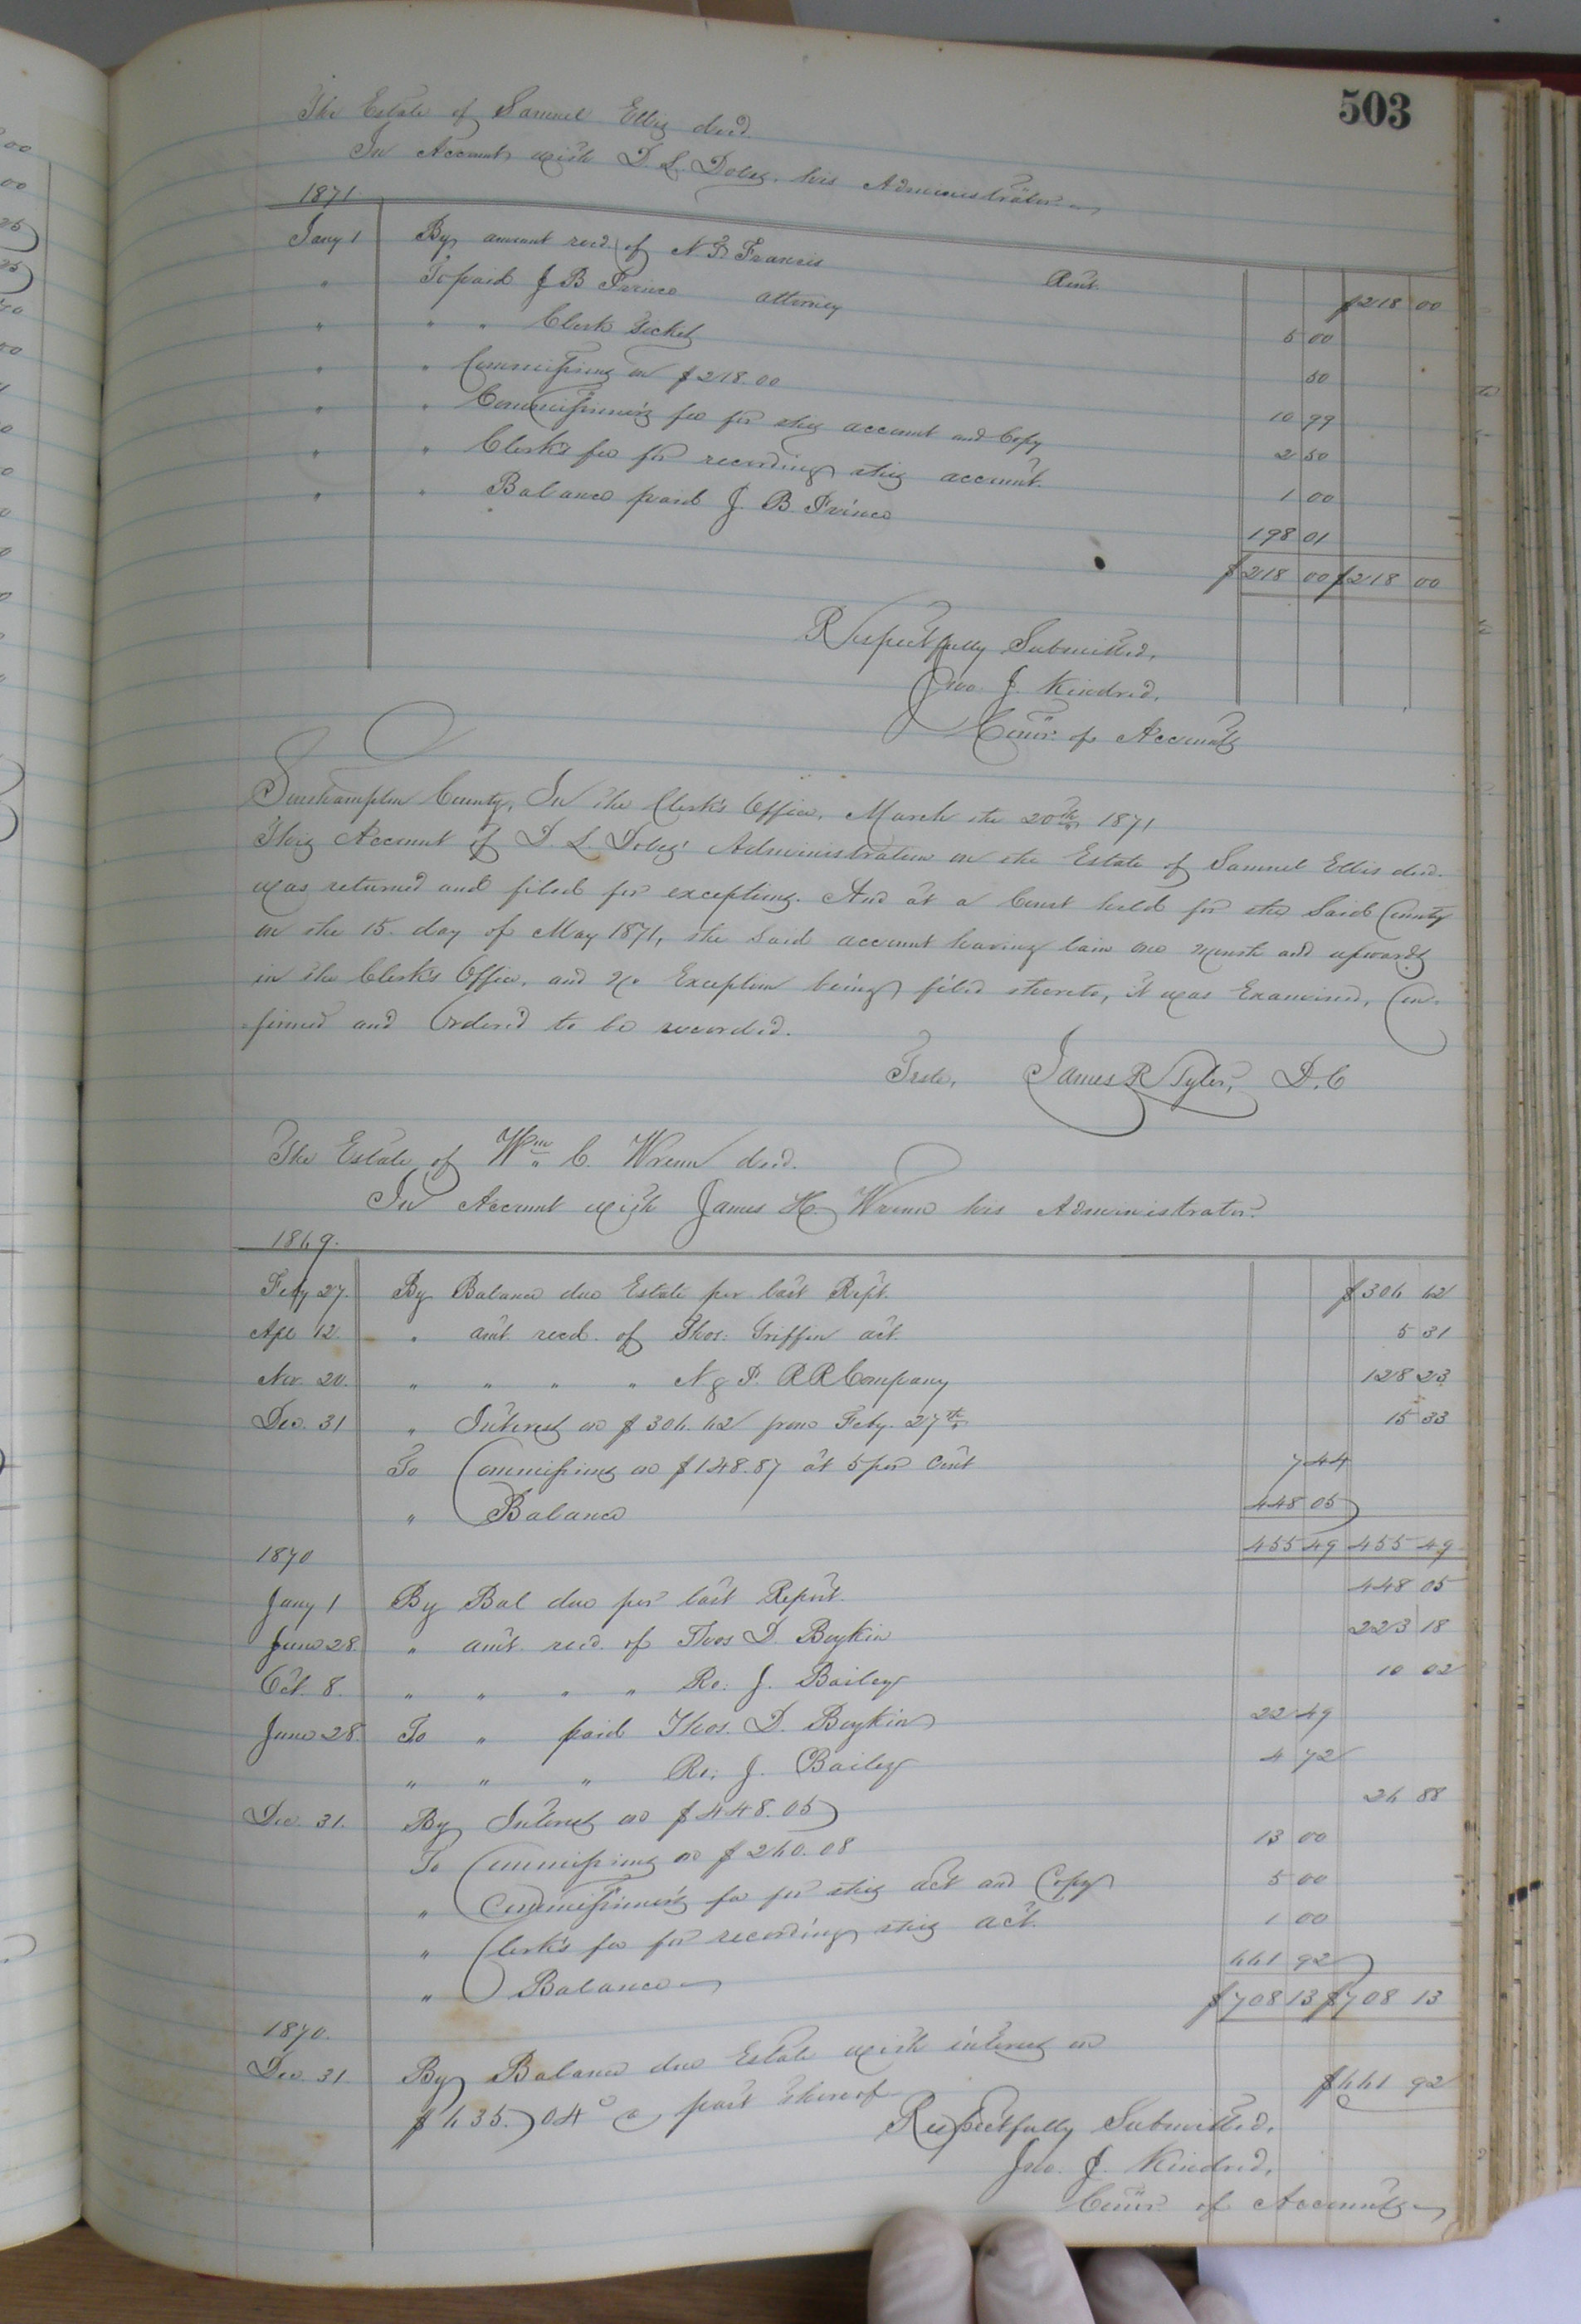 503
The Estate of Samuel Ellis decd.
In Account with D. L. Doles, his Administrator
1871
Jany 1 By amount recd. of N. T. Francis Amt. $218 00
" To paid J B Prince attorney 5 00
" " " Clerk Ticket 50
" " Commissions on $218.00 10 99
" " Commissioner's fee for this account and Copy 2 50
" " Clerk's fee for recording this account. 1 00
" " Balance paid J. B. Prince 198 01
$218 00 $218 00
Respectfully Submitted,
Jno. J. Kindred,
Comr. of Accounts
Southampton County, In the Clerk's Office, March the 20th 1871
This Account of D. L. Doles' Administration on the Estate of Samuel Ellis decd.
was returned and filed for exceptions. And at a Court held for the Said County
on the 15. day of May 1871, the Said account having lain one month and upwards
in the Clerk's Office, and no Exception being filed thereto, it was Examined, Con-
-firmed and Ordered to be recorded.
Teste, James R Tyler, D. C
The Estate of Wm C. Wrenn decd.
In Account with James H. Wrenn his Administrator.
1869.
Feby 27. By Balance due Estate per last Rept. $306 62
Apl 12. " amt. recd. of Thos: Griffin act. 5 31
Nov. 20. " " " " N & P. R R Company 128 23
Dec. 31 " Interest on $306.62 from Feby. 27th 15 33
To Commissions on $148.87 at 5 per Cent 7 44
" Balance 448 05
455 49 455 49
1870
Jany 1 By Bal due per last Report. 448 05
June 28. " amt. recd. of Thos D. Boykin 223 18
Oct. 8. " " " " Ro: J. Bailey 10 02
June 28. To " paid Thos. D. Boykin 22 49
" " " Ro: J. Bailey 4 72
Dec. 31. By Interest on $448.05 26 88
To Commissions on $260.08 13 00
" Commissioner's fee for this act and Copy 5 00
" Clerk's fee for recording this act. 1 00
" Balance 661 92
$708 13 $708 13
1870.
Dec. 31. By Balance due Estate with interest on $661 92
$635.04 a part thereof
Respectfully Submitted,
Jno. J. Kindred,
Comr. of Accounts